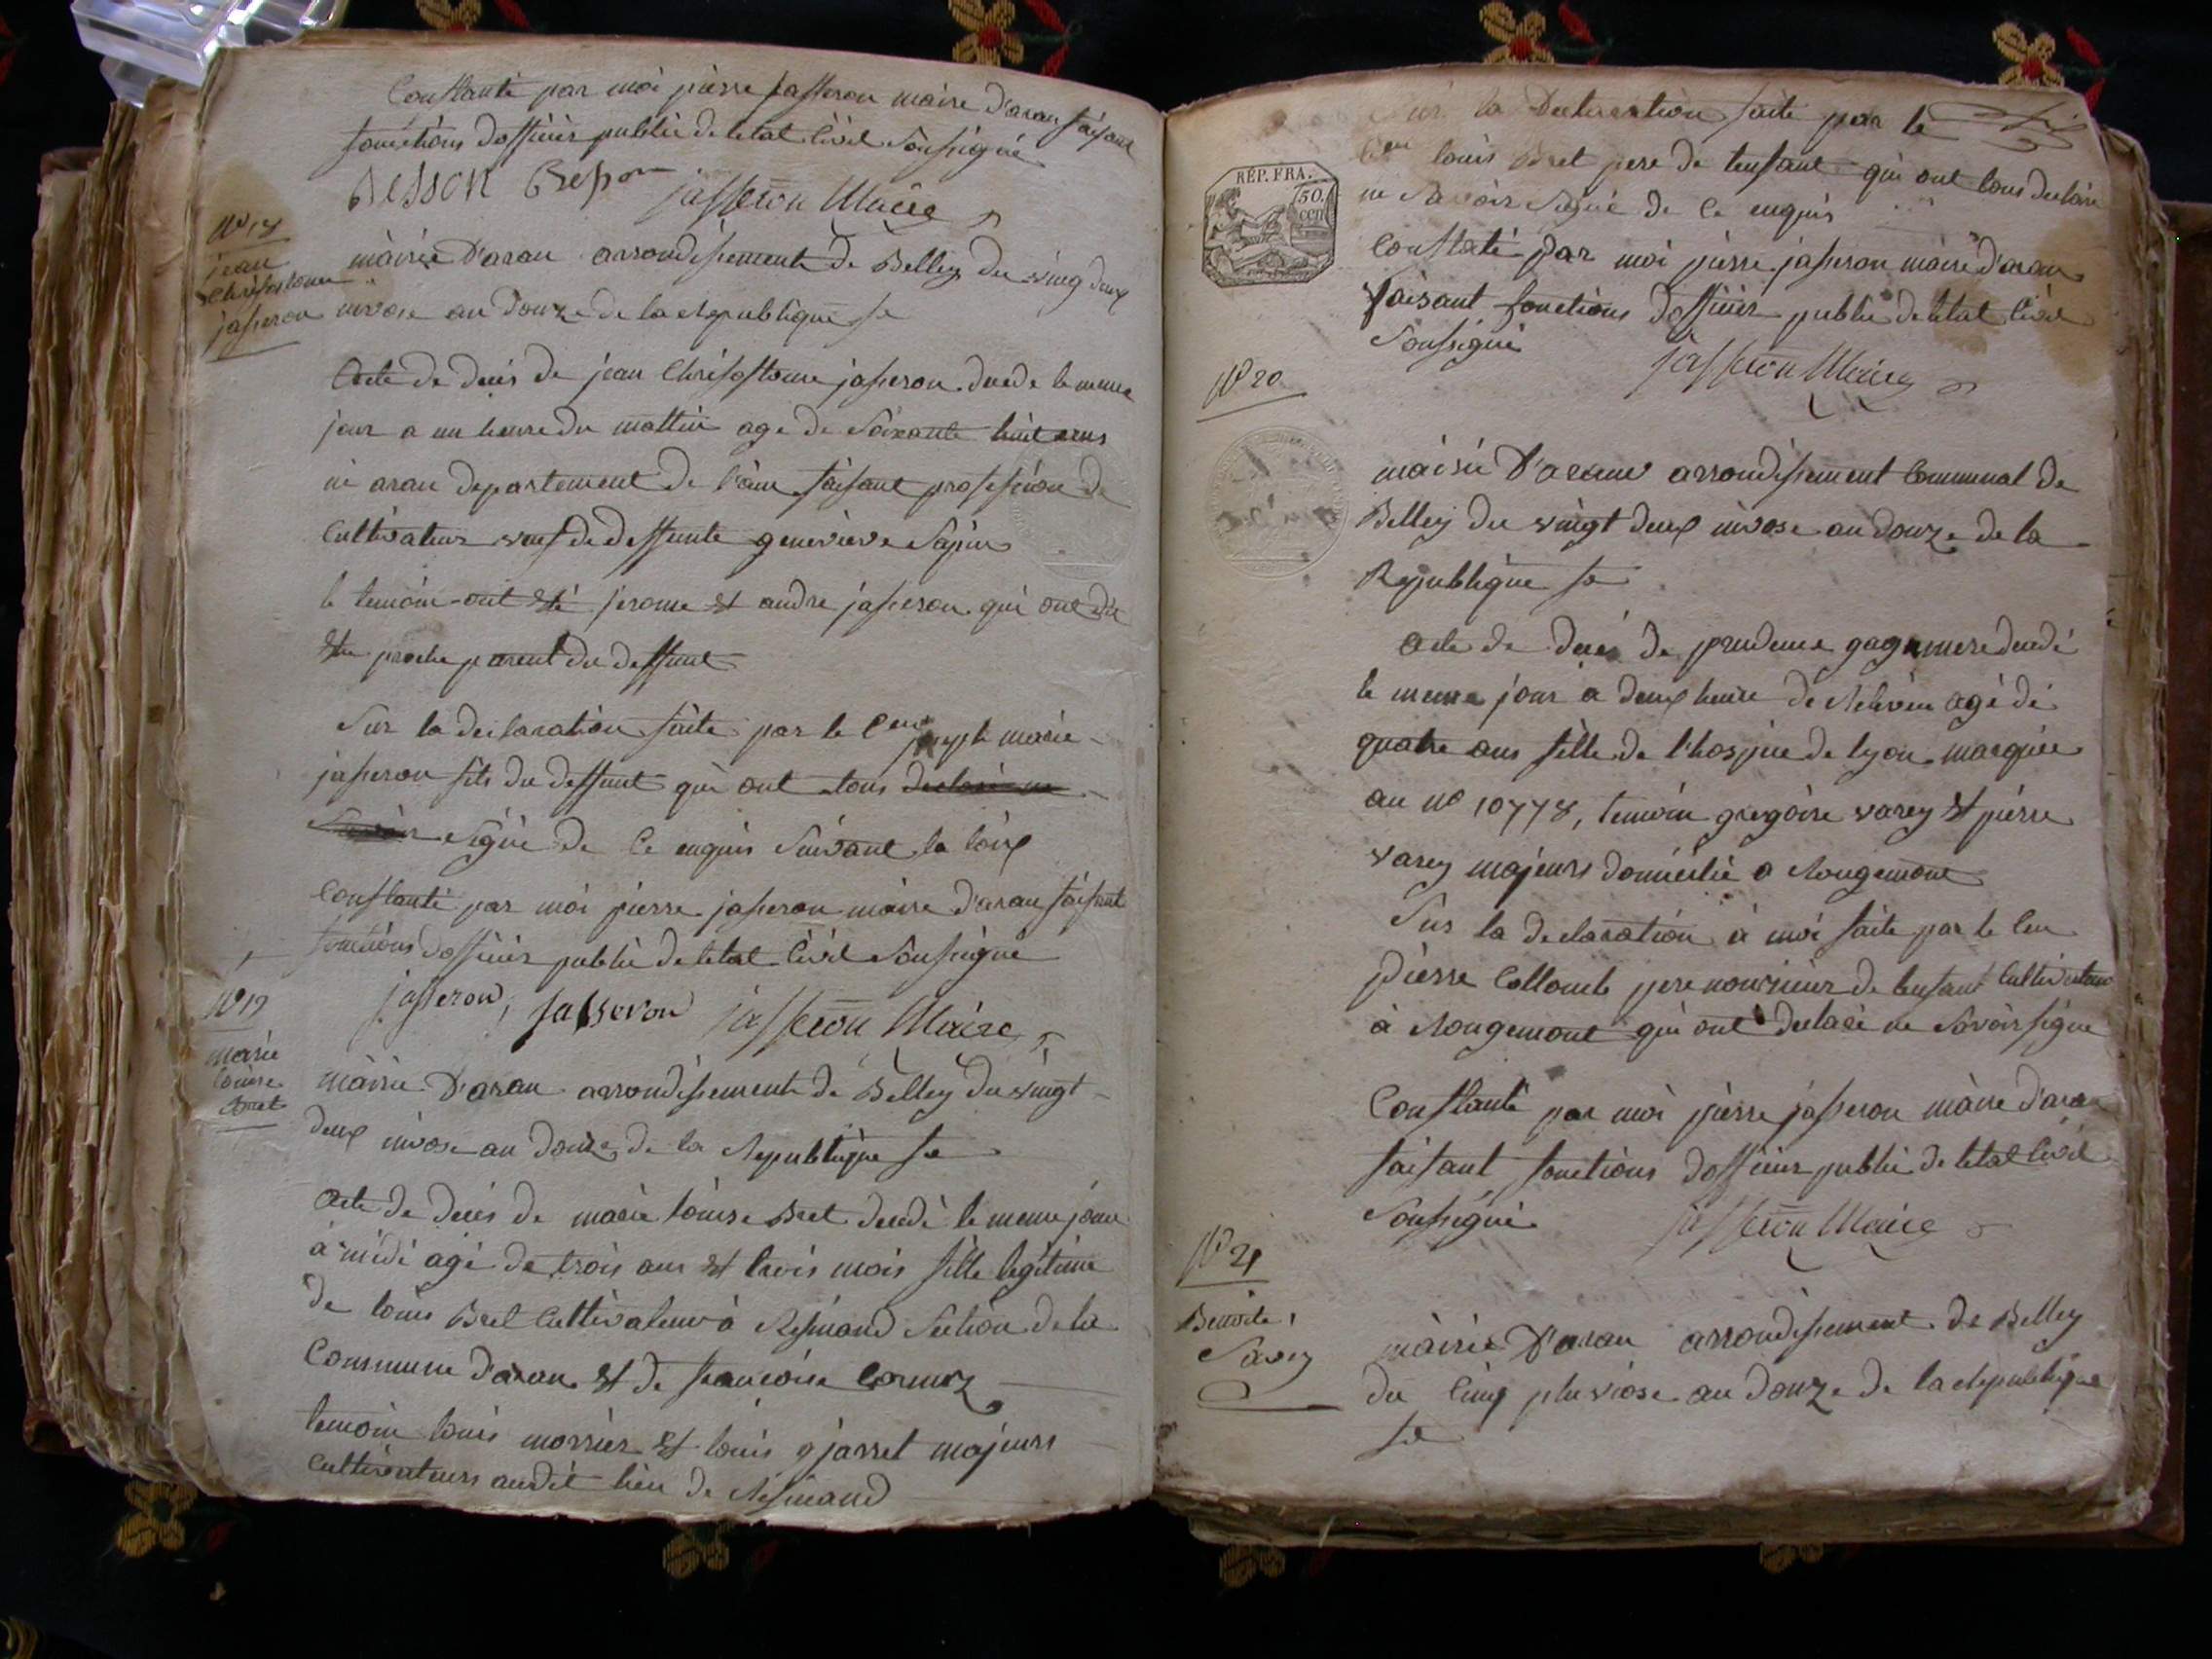 Constanté par moi pierre jasseron maire d'aran faisant
fonctions dofficier public de letat civil soussigné
BESSON Crespon jasseron Maire
N° 18
jean
Chrisostome
jasseron
mairie D'aran arrondissement de Belley du vingt deux
nivose an Douze de la Republique fe
Acte de deces de jean Chrisostome jasseron decede le meme
jour a un heure du mattin age de soixante huit ans
né aran departement de l'ain faisant profession de
Cultivateur veuf de deffunte genevieve Sapin
le temoin ont été jerome et andre jasseron qui ont dit
etre proche parent du deffunt
Sur la declaration faite par le Cen joseph marie
jasseron fils du deffunt qui ont tous declaré ne
savoir signé de ce enquis suivant la loix
Constanté par moi pierre jasseron maire d'aran faisant
fonctions dofficier public de letat civil soussigné
jasseron, jasseron jasseron Maire
N° 19
marie
louise
Bret
mairie D'aran arrondissement de Belley du vingt
deux nivose an douze de la Republique fe
Acte de deces de marie louise Bret decedé le meme jour
à midi agé de trois ans et trois mois fille legitime
de louis Bret Cultivateur à Resinand section de la
Commune d'aran et de francoise Cornuz
temoin louis morrier et louis jarret majeurs
Cultivateurs audit lieu de Resinand
Sur la Declaration faite par le
Cen louis Bret pere de lenfant qui ont tous declaré
ne savoir signé de ce enquis
REP. FRA.
50.
cen
Constaté par moi pierre jasseron maire d'aran
faisant fonctions dofficier public de letat civil
soussigné jasseron Maire
N° 20
mairie D'aran arrondissement Communal de
Belley du vingt deux nivose an douze de la
Republique fe
Acte de decé de prudence decedé
le meme jour a deux heure de Relevée agé de
quatre ans fille de l'hospice de lyon marquée
au N° 10778, temoin gregoire varey et pierre
varey majeurs domicilié a Rougemont
Sur la declaration à moi faite par le Cen
pierre Collomb pere nouricier de lenfant Cultivateur
à Rougemont qui ont declaré ne savoir signé
Constanté par moi pierre jasseron maire d'aran
faisant fonctions dofficier public de letat civil
soussigné jasseron Maire
N° 21
Benoite
Savey
mairie D'aran arrondissement de Belley
du Cinq pluviose an douze de la Republique
fe